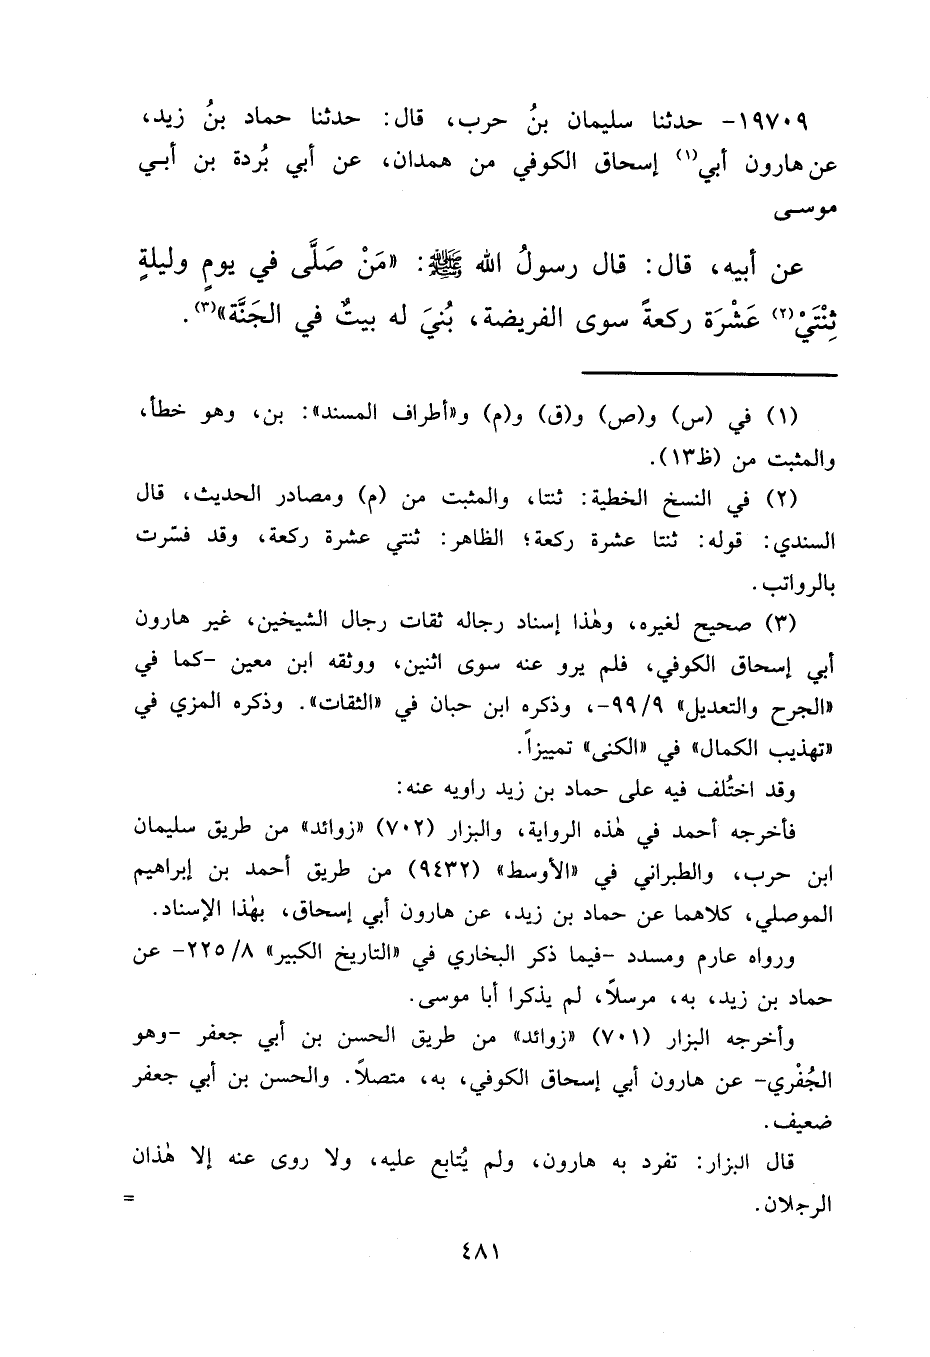 ١٩٧٠٩- حدثنا سليمان بنُ حرب، قال: حدثنا حماد بنُ زيد،
عن هارون أبي(١) إسحاق الكوفي من همدان، عن أبي بُردة بن أبي
موسى
عن أبيه، قال: قال رسولُ الله ﷺ: «مَنْ صَلَّى في يومٍ وليلةٍ
ثِنْتَيْ(٢) عَشْرَة ركعةً سوى الفريضة، بُنيَ له بيتٌ في الجَنَّة»(٣).
(١) في (س) و(ص) و(ق) و(م) و«أطراف المسند»: بن، وهو خطأ،
والمثبت من (ظ١٣).
(٢) في النسخ الخطية: ثنتا، والمثبت من (م) ومصادر الحديث، قال
السندي: قوله: ثنتا عشرة ركعة؛ الظاهر: ثنتي عشرة ركعة، وقد فسّرت
بالرواتب.
(٣) صحيح لغيره، وهٰذا إسناد رجاله ثقات رجال الشيخين، غير هارون
أبي إسحاق الكوفي، فلم يرو عنه سوى اثنين، ووثقه ابن معين -كما في
«الجرح والتعديل» ٩٩/٩-، وذكره ابن حبان في «الثقات». وذكره المزي في
«تهذيب الكمال» في «الكنى» تمييزاً.
وقد اختُلف فيه على حماد بن زيد راويه عنه:
فأخرجه أحمد في هٰذه الرواية، والبزار (٧٠٢) «زوائد» من طريق سليمان
ابن حرب، والطبراني في «الأوسط» (٩٤٣٢) من طريق أحمد بن إبراهيم
الموصلي، كلاهما عن حماد بن زيد، عن هارون أبي إسحاق، بهٰذا الإسناد.
ورواه عارم ومسدد -فيما ذكر البخاري في «التاريخ الكبير» ٢٢٥/٨- عن
حماد بن زيد، به، مرسلاً، لم يذكرا أبا موسى.
وأخرجه البزار (٧٠١) «زوائد» من طريق الحسن بن أبي جعفر -وهو
الجُفْري- عن هارون أبي إسحاق الكوفي، به، متصلاً. والحسن بن أبي جعفر
ضعيف.
قال البزار: تفرد به هارون، ولم يُتابع عليه، ولا روى عنه إلا هٰذان
الرجلان. =
٤٨١